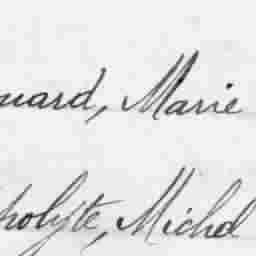 uard, Marie
polyte, Michel